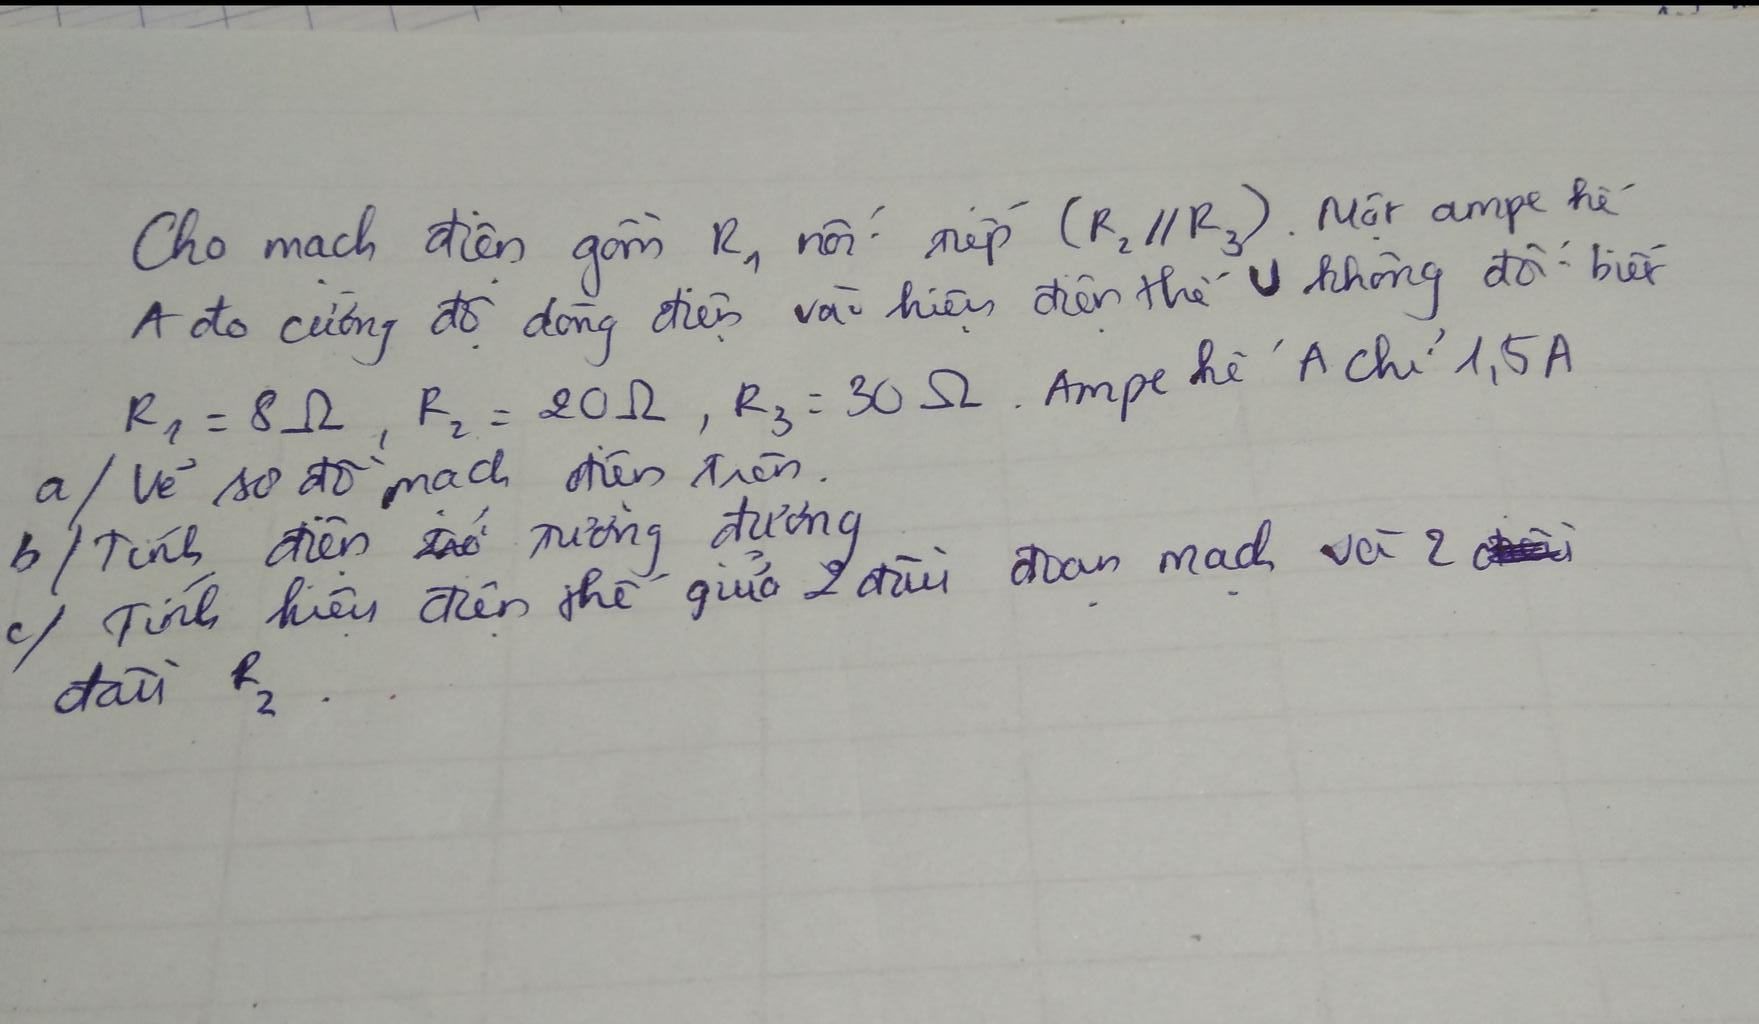 Cho mạch điện gồm R₁ nối tiếp (R₂//R₃). Một ampe kế
A đo cường độ dòng điện và hiệu điện thế U không đổi biết
R₁ = 8Ω, R₂ = 20Ω, R₃ = 30Ω. Ampe kế A chỉ 1,5A
a/ Vẽ sơ đồ mạch điện trên.
b/ Tính điện trở tương đương
c/ Tính hiệu điện thế giữa 2 đầu đoạn mạch và 2
đầu R₂.